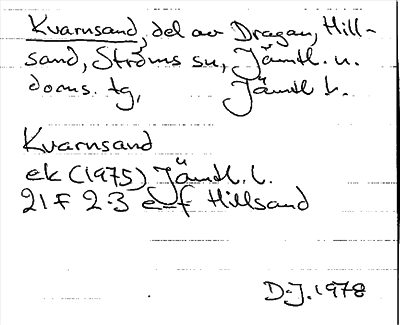 Kvarnsand, del av Dragan, Hill-
sand, Ströms sn, Jämtl. n.
doms. tg, Jämtl l.
Kvarnsand
ek (1975) Jämtl. l.
21 F 2-3 e-f Hillsand
D-J. 1978